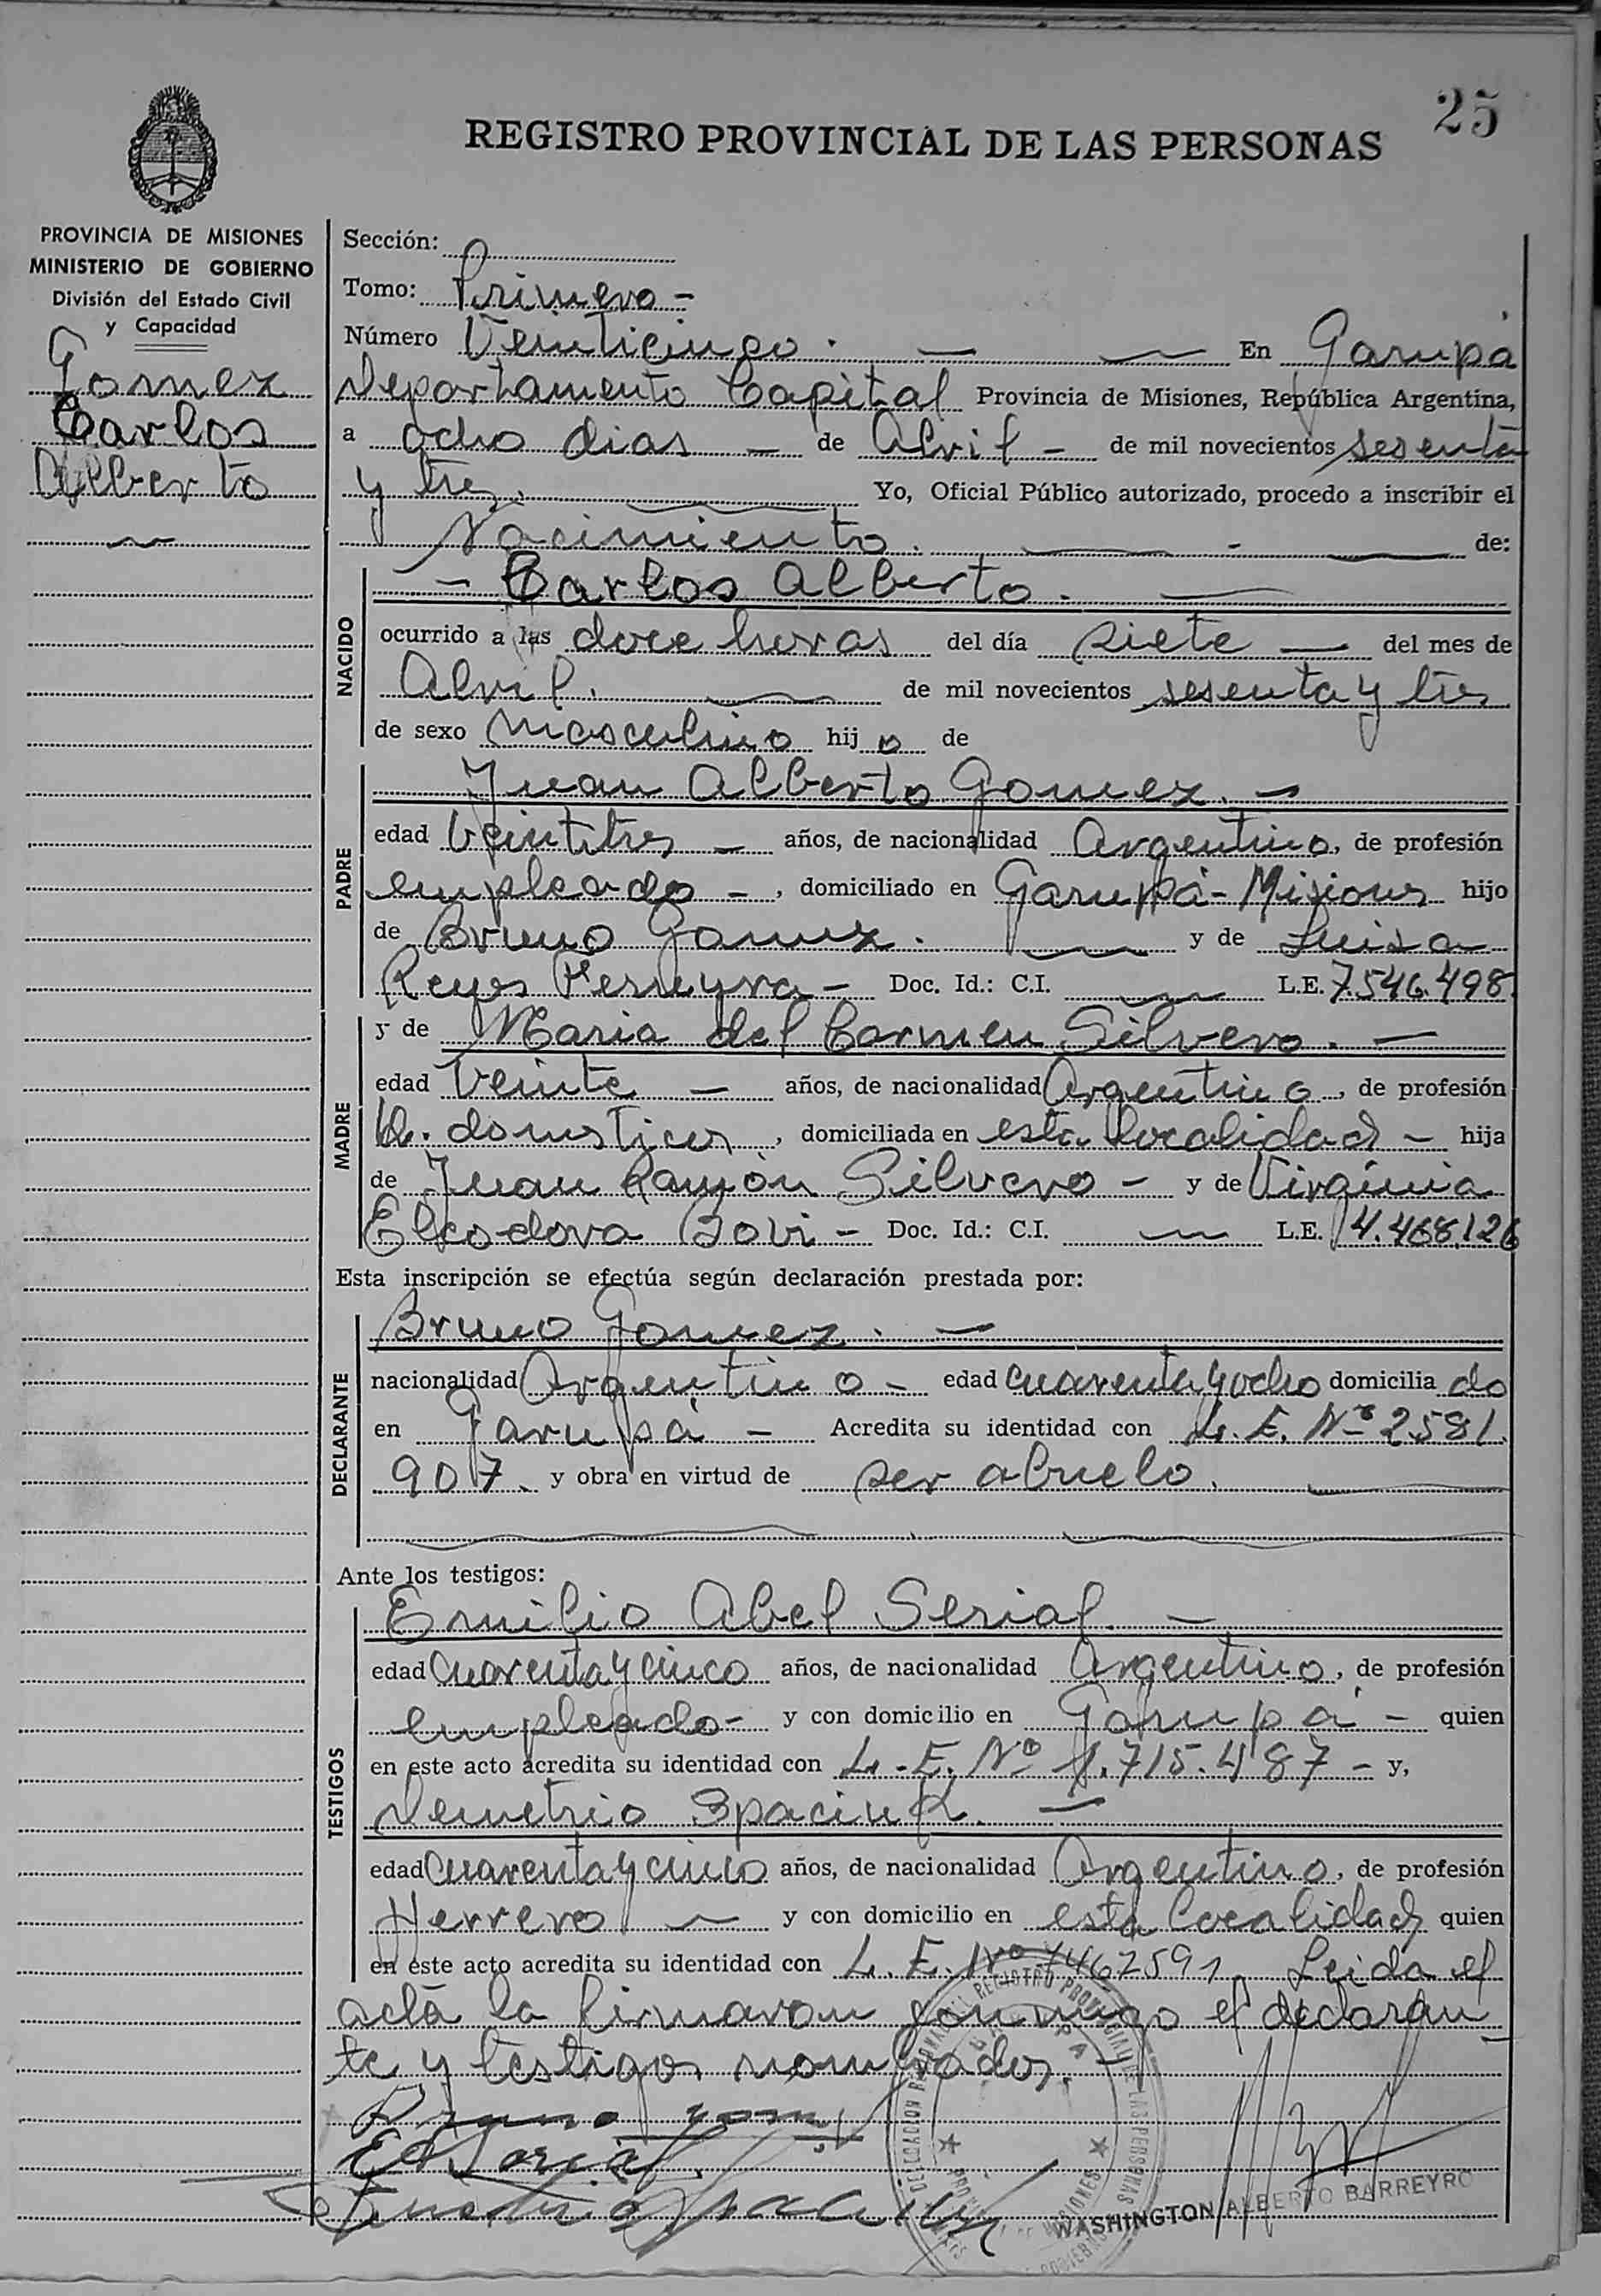 25
REGISTRO PROVINCIAL DE LAS PERSONAS
PROVINCIA DE MISIONES
MINISTERIO DE GOBIERNO
División del Estado Civil
y Capacidad
Gomez
Carlos
Alberto
Sección:
Tomo: Primero -
Número Veinticinco. En Garupá
Departamento Capital Provincia de Misiones, República Argentina,
a ocho dias de Abril - de mil novecientos sesenta
y tres. Yo, Oficial Público autorizado, procedo a inscribir el
Nacimiento. de:
NACIDO
- Carlos Alberto.
ocurrido a las doce horas del día siete del mes de
Abril. de mil novecientos sesenta y tres
de sexo masculino hijo de
PADRE
Juan Alberto Gomez. -
edad veintitres - años, de nacionalidad Argentino, de profesión
empleado -, domiciliado en Garupá - Misiones hijo
de Bruno Gomez. y de Luisa
Reyes Ferreyra - Doc. Id.: C.I. L.E. 7.546.498.
MADRE
y de Maria del Carmen Silvero. -
edad Veinte - años, de nacionalidad Argentina, de profesión
Q. domesticos, domiciliada en esta localidad - hija
de Juan Ramón Silvero - y de Virginia
Eleodora - Doc. Id.: C.I. L.E. 4.468.126
Esta inscripción se efectúa según declaración prestada por:
DECLARANTE
Bruno Gomez. -
nacionalidad Argentino - edad cuarenta y ocho domiciliado
en Garupá - Acredita su identidad con L.E. Nº 2581.
907. y obra en virtud de ser abuelo.
Ante los testigos:
TESTIGOS
Emilio Abel Serial. -
edad cuarenta y cinco años, de nacionalidad Argentino, de profesión
empleado - y con domicilio en Garupá - quien
en este acto acredita su identidad con L.E. Nº 1.715.487 - y,
Demetrio Spaciuk. -
edad cuarenta y cinco años, de nacionalidad Argentino, de profesión
Herrero y con domicilio en esta localidad quien
en este acto acredita su identidad con L.E. Nº 7467591 Leida el
acta la firmaron conmigo el declaran
te y testigos nombrados. -
Bruno Gomez
WASHINGTON ALBERTO BARREYRO